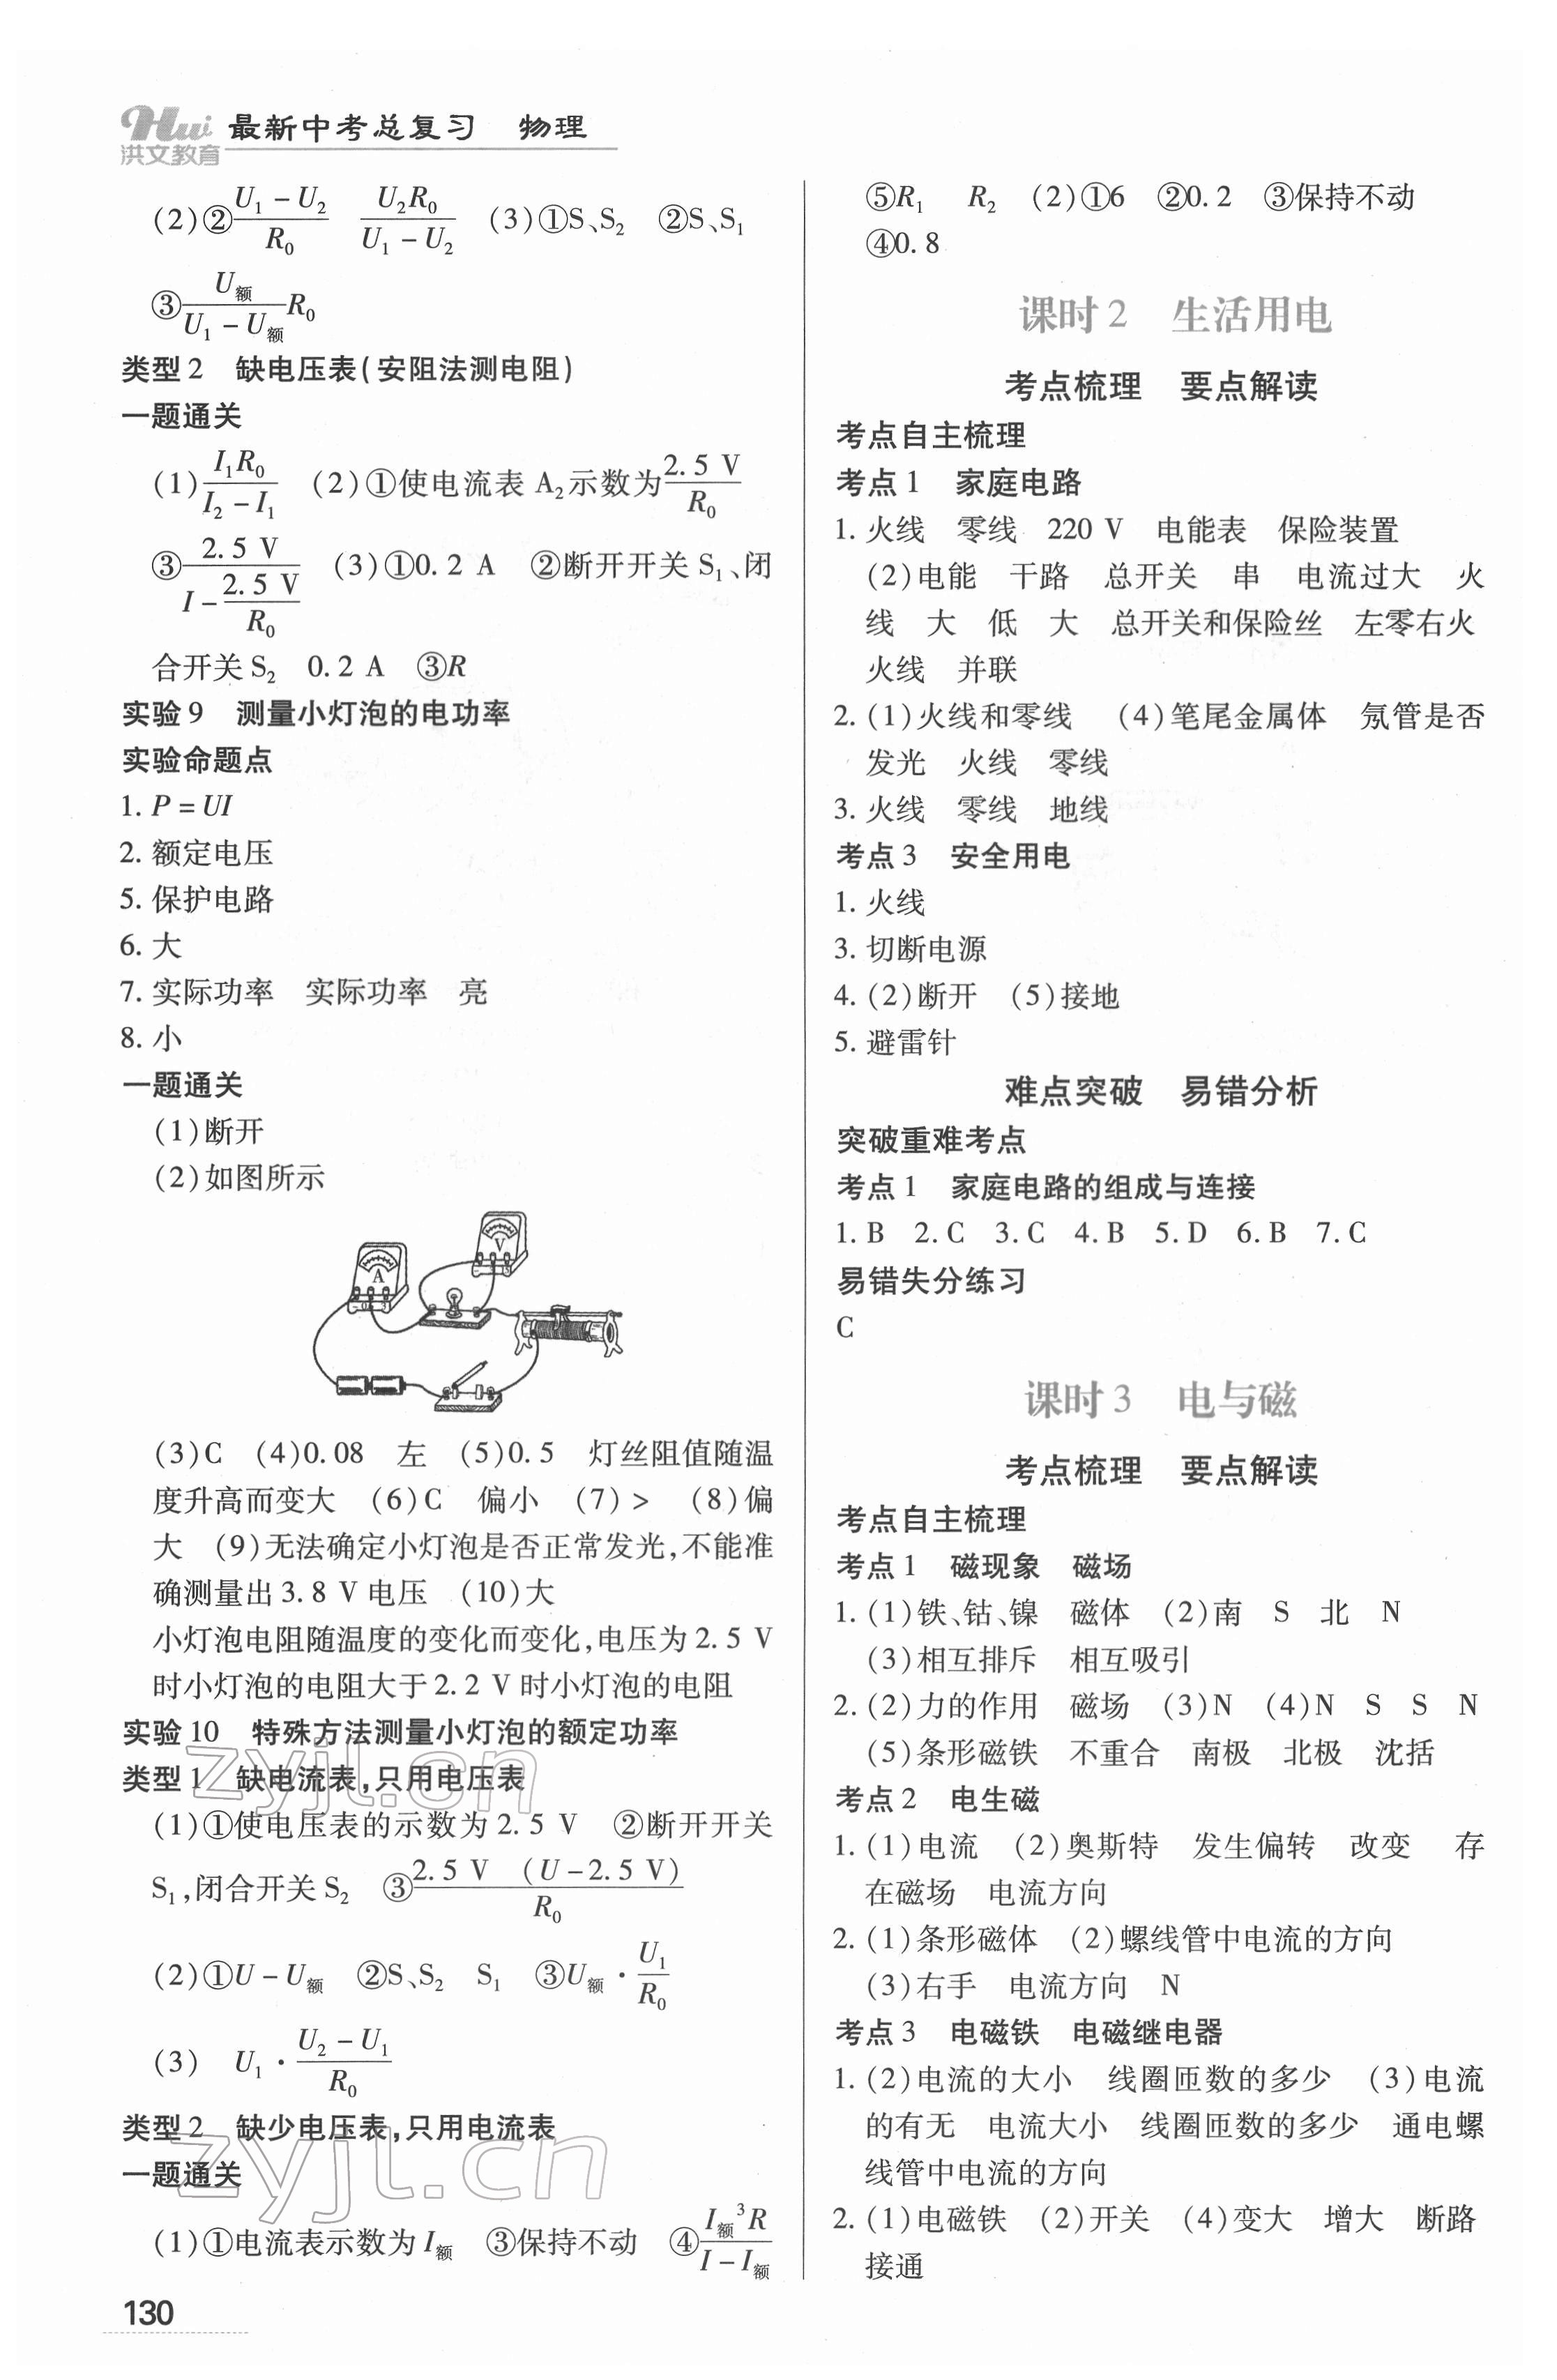 Hui 最新中考总复习 物理
洪文教育
(2)②(U₁－U₂)/R₀ U₂R₀/(U₁－U₂) (3)①S、S₂ ②S、S₁
③U额/(U₁－U额)R₀
类型2 缺电压表(安阻法测电阻)
一题通关
(1)I₁R₀/(I₂－I₁) (2)①使电流表 A₂示数为2.5 V/R₀
③2.5 V/(I－2.5 V/R₀) (3)①0.2 A ②断开开关 S₁、闭
合开关 S₂ 0.2 A ③R
实验9 测量小灯泡的电功率
实验命题点
1. P=UI
2. 额定电压
5. 保护电路
6. 大
7. 实际功率 实际功率 亮
8. 小
一题通关
(1)断开
(2)如图所示
A
V
(3)C (4)0.08 左 (5)0.5 灯丝阻值随温
度升高而变大 (6)C 偏小 (7)> (8)偏
大 (9)无法确定小灯泡是否正常发光,不能准
确测量出3.8 V电压 (10)大
小灯泡电阻随温度的变化而变化,电压为2.5 V
时小灯泡的电阻大于2.2 V时小灯泡的电阻
实验10 特殊方法测量小灯泡的额定功率
类型1 缺电流表,只用电压表
(1)①使电压表的示数为2.5 V ②断开开关
S₁,闭合开关 S₂ ③2.5 V (U－2.5 V)/R₀
(2)①U－U额 ②S、S₂ S₁ ③U额·U₁/R₀
(3) U₁·(U₂－U₁)/R₀
类型2 缺少电压表,只用电流表
一题通关
(1)①电流表示数为I额 ③保持不动 ④I额³R/(I－I额)
130
⑤R₁ R₂ (2)①6 ②0.2 ③保持不动
④0.8
课时2 生活用电
考点梳理 要点解读
考点自主梳理
考点1 家庭电路
1. 火线 零线 220 V 电能表 保险装置
(2)电能 干路 总开关 串 电流过大 火
线 大 低 大 总开关和保险丝 左零右火
火线 并联
2. (1)火线和零线 (4)笔尾金属体 氖管是否
发光 火线 零线
3. 火线 零线 地线
考点3 安全用电
1. 火线
3. 切断电源
4. (2)断开 (5)接地
5. 避雷针
难点突破 易错分析
突破重难考点
考点1 家庭电路的组成与连接
1. B 2. C 3. C 4. B 5. D 6. B 7. C
易错失分练习
C
课时3 电与磁
考点梳理 要点解读
考点自主梳理
考点1 磁现象 磁场
1. (1)铁、钴、镍 磁体 (2)南 S 北 N
(3)相互排斥 相互吸引
2. (2)力的作用 磁场 (3)N (4)N S S N
(5)条形磁铁 不重合 南极 北极 沈括
考点2 电生磁
1. (1)电流 (2)奥斯特 发生偏转 改变 存
在磁场 电流方向
2. (1)条形磁体 (2)螺线管中电流的方向
(3)右手 电流方向 N
考点3 电磁铁 电磁继电器
1. (2)电流的大小 线圈匝数的多少 (3)电流
的有无 电流大小 线圈匝数的多少 通电螺
线管中电流的方向
2. (1)电磁铁 (2)开关 (4)变大 增大 断路
接通
zyjl.cn
zyjl.cn